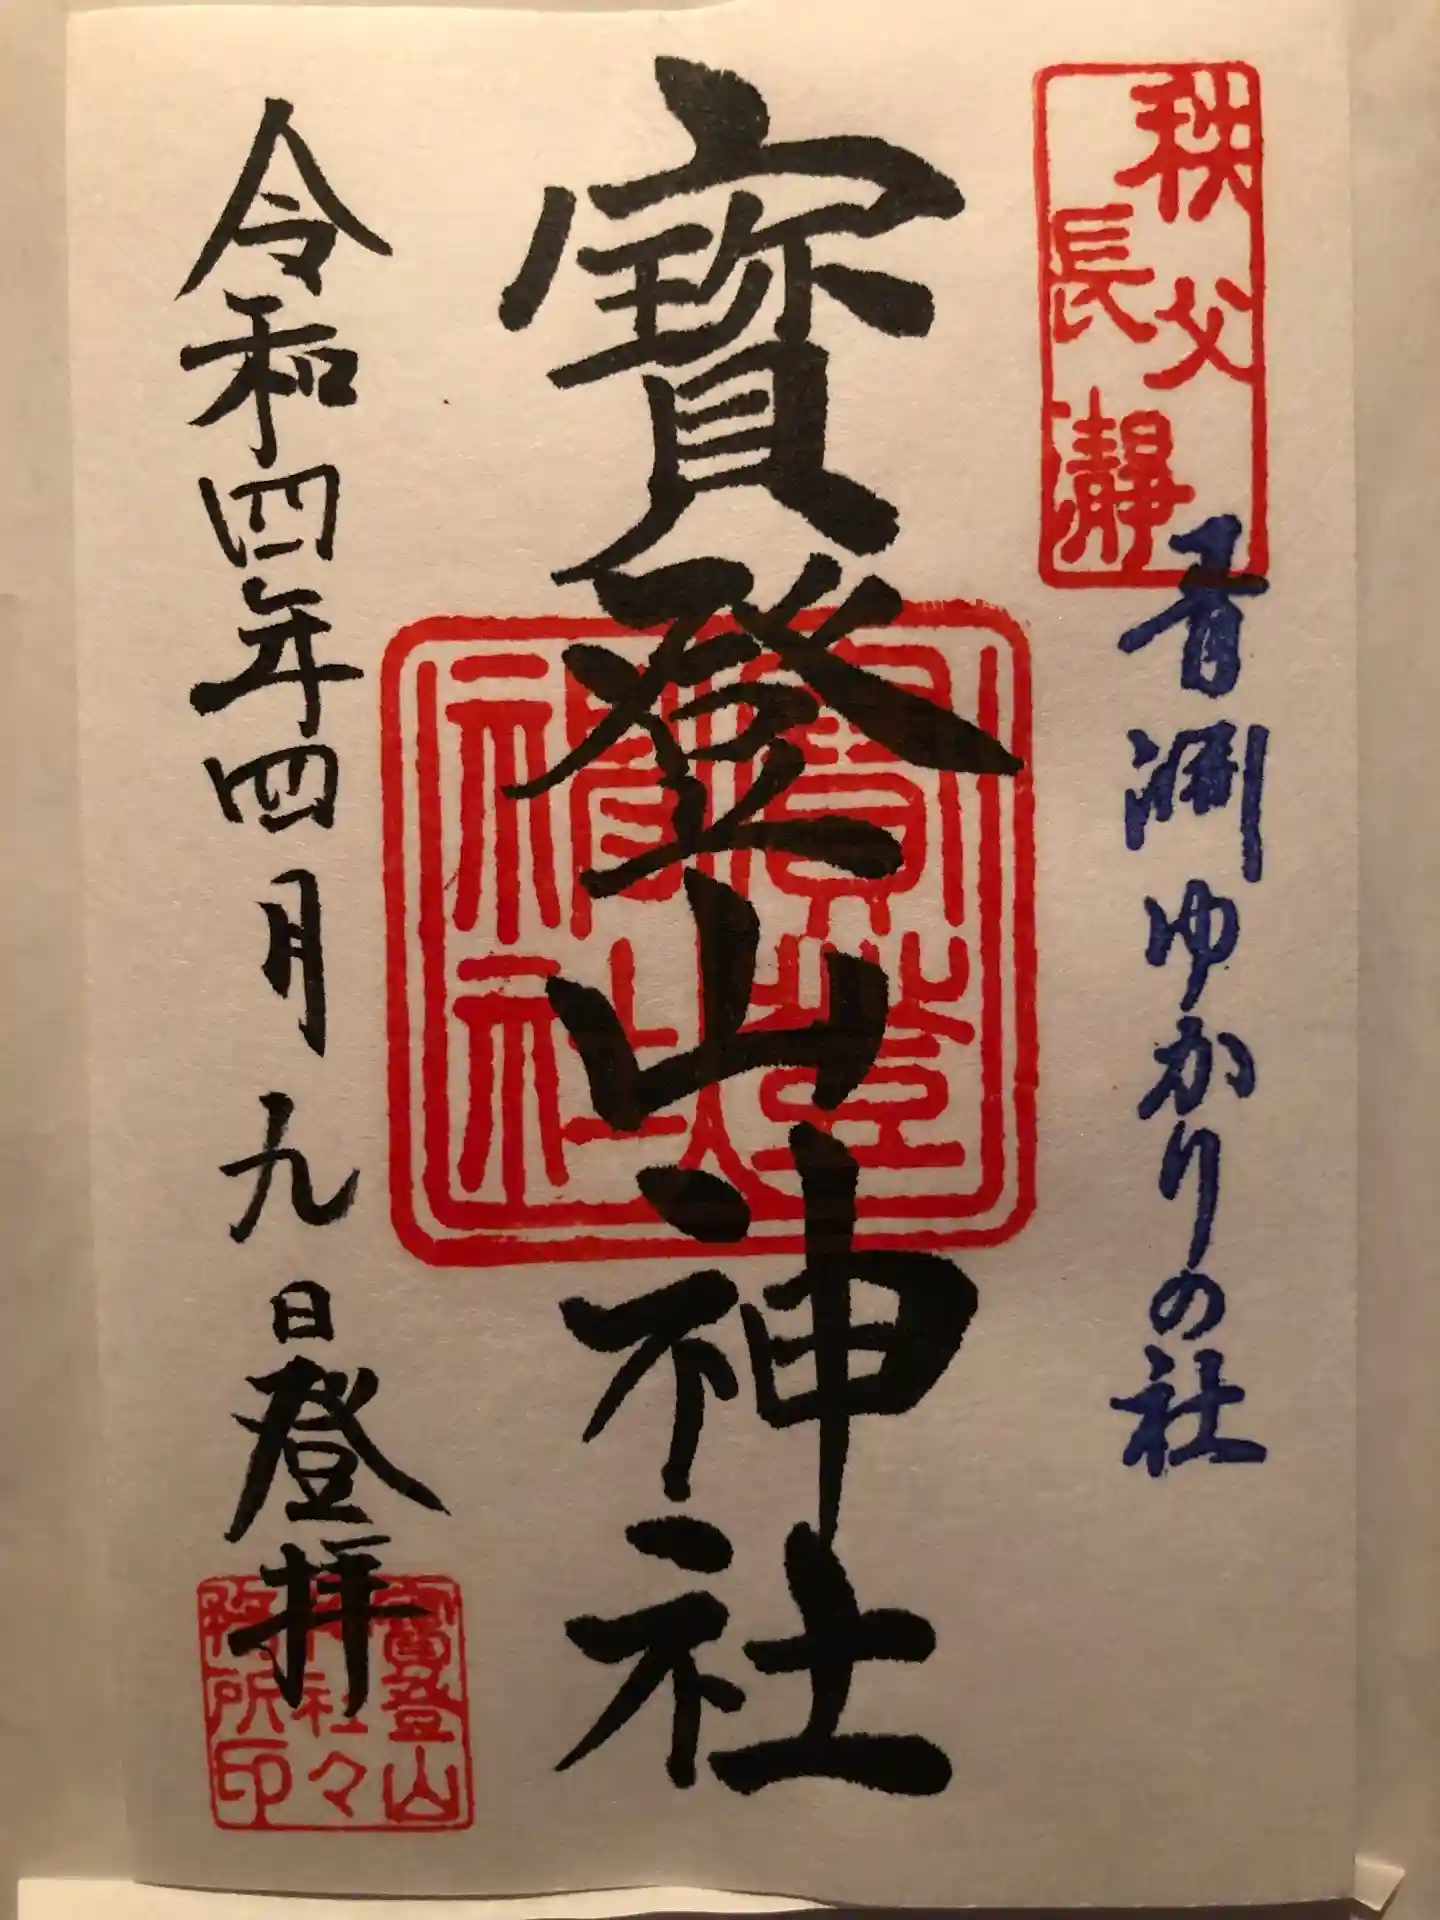 秩父
長瀞
青淵ゆかりの社
寶登山神社
寶登山
神社
令和四年四月九日登拝
寶登山
神社々
務所印